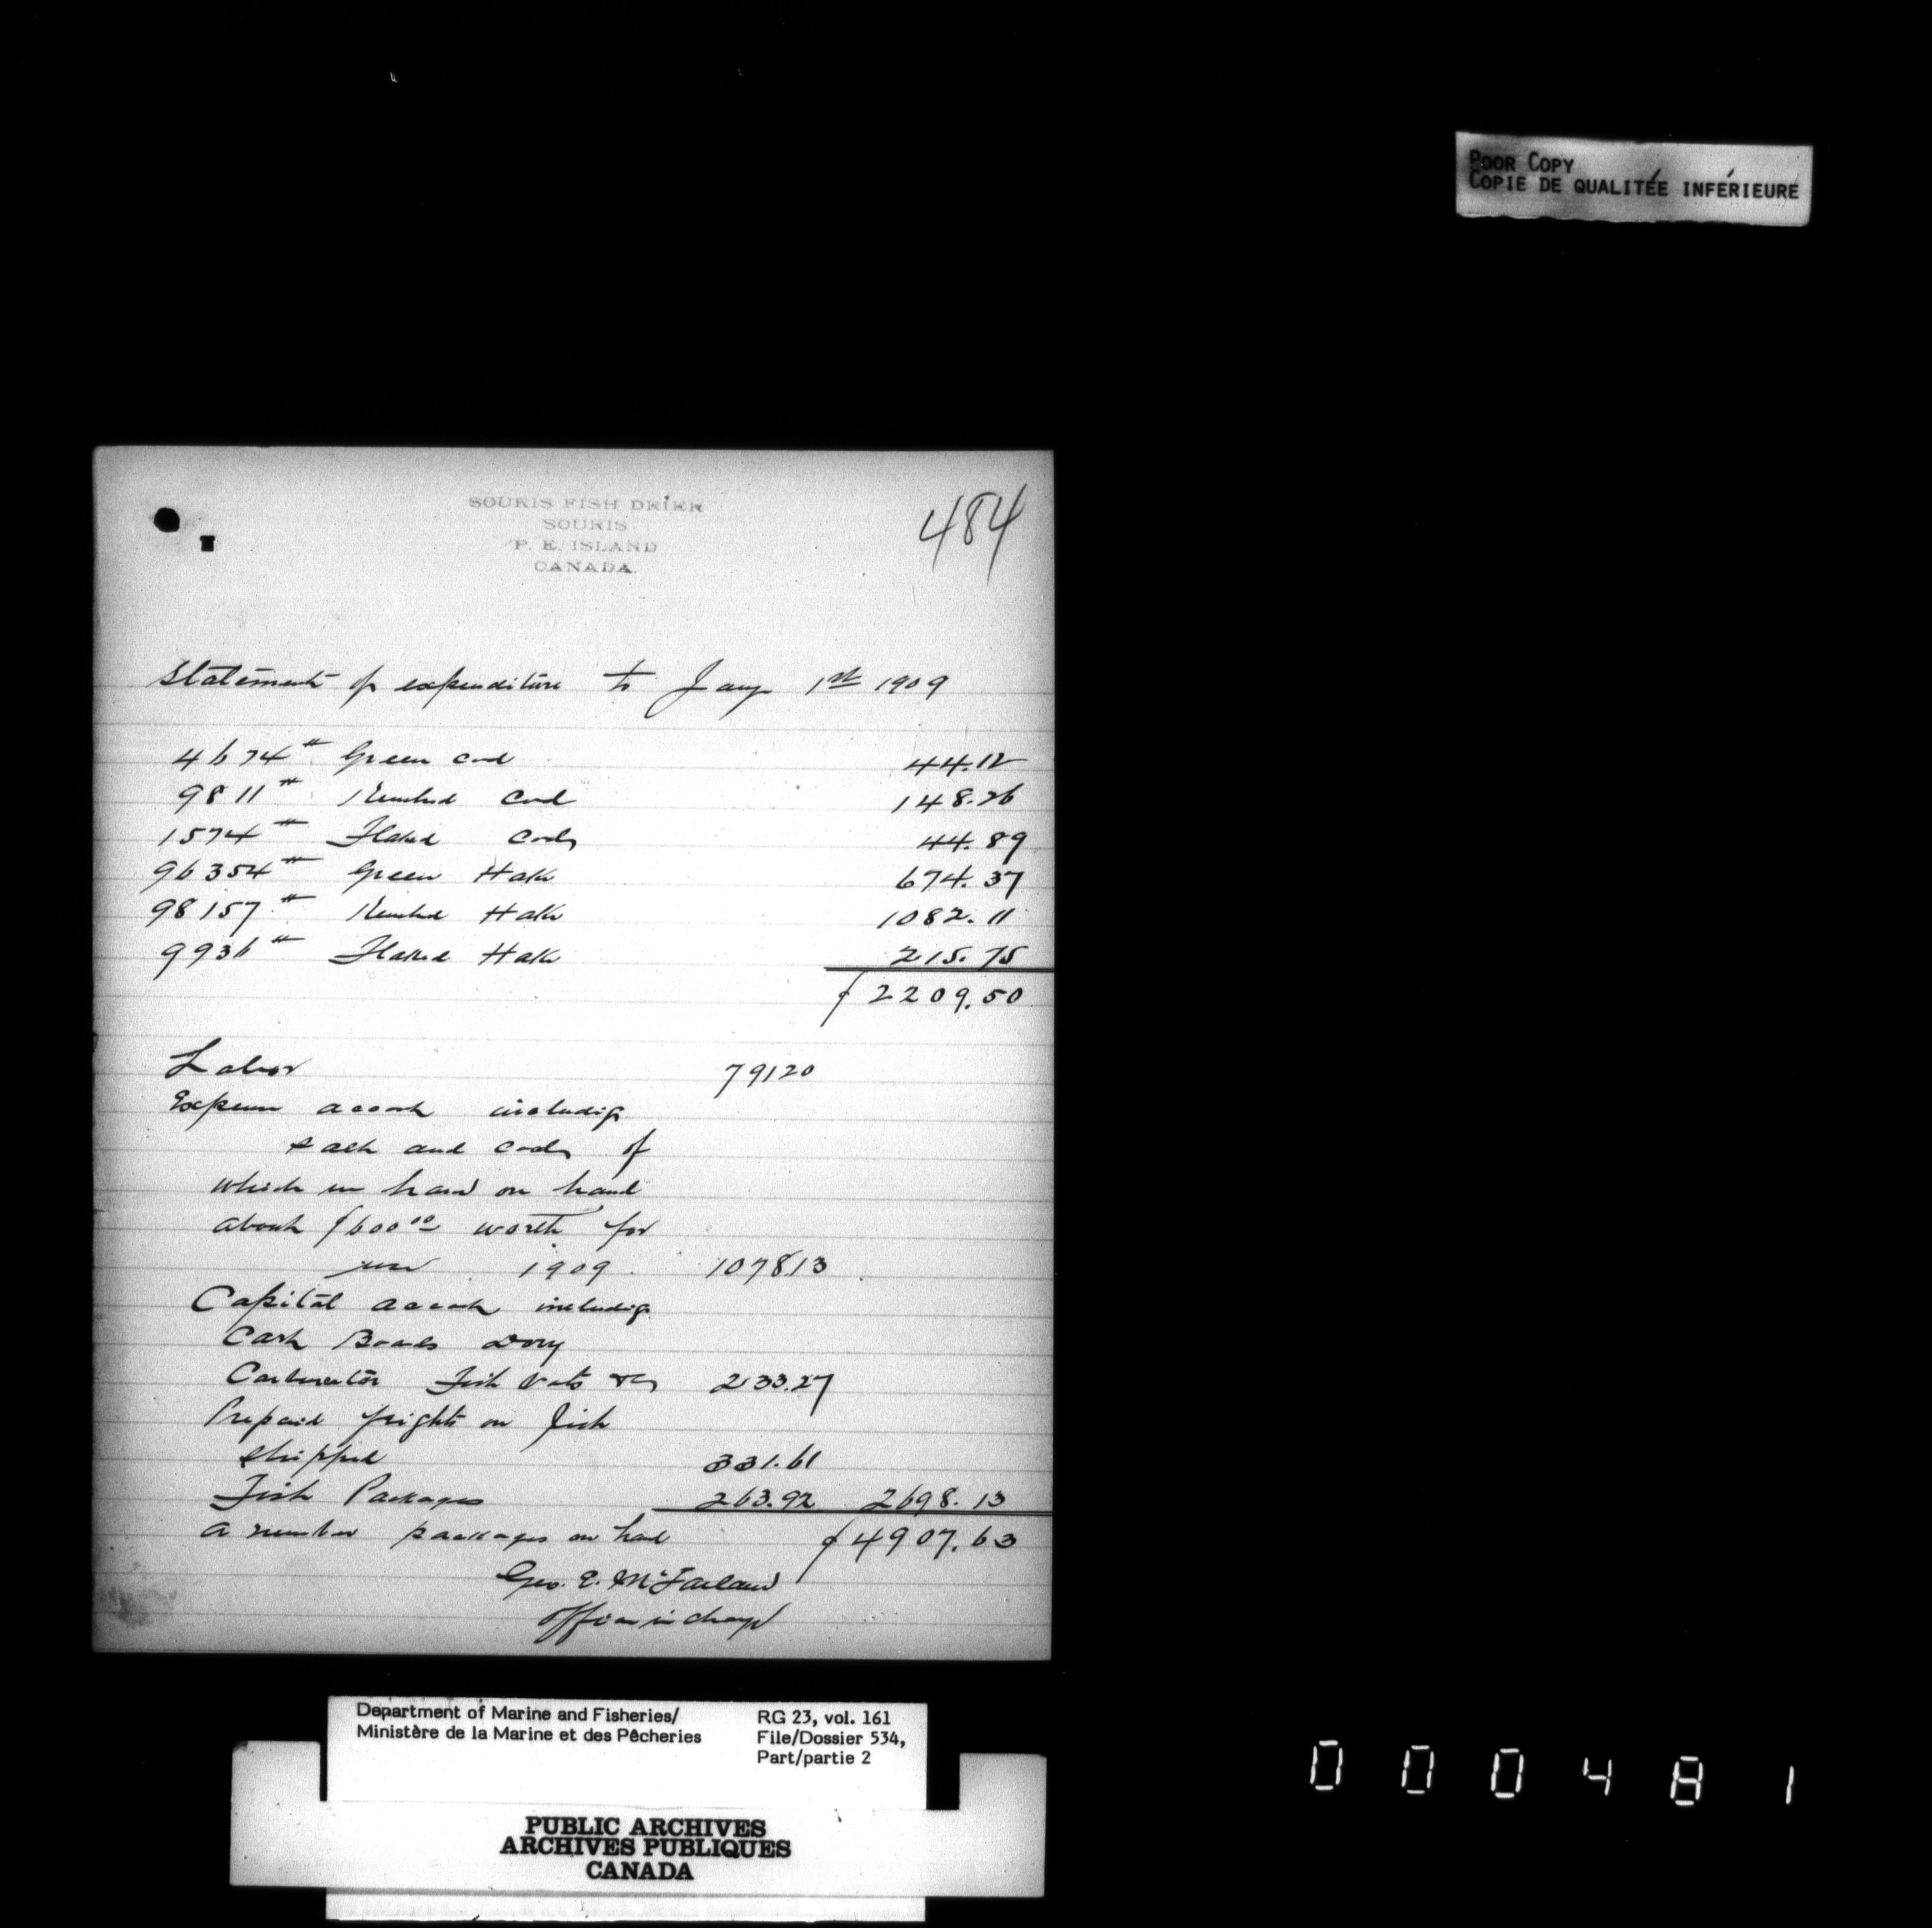 POOR COPY
COPIE DE QUALITÉE INFÉRIEURE
SOURIS FISH DRIER
SOURIS
P. E. ISLAND
CANADA.
484
Statement of expenditure to Jany 1st 1909
4674# Green cod 44.12
9811# Kenched Cod 148.26
1574# Flaked Cod 44.89
96354# Green Hake 674.37
98157# Kenched Hake 1082.11
9936# Flaked Hake 215.75
$2209.50
Labor 79120
Expense accout includig
salt and coal of
which we have on hand
about $600 00 worth for
use 1909 107813
Capital accout includig
Cart Boards Dory
Carburetor Fish Vats &c 233.27
Prepaid frights on fish
shipped 331.61
Fish Packages 263.92 2698.13
a number packages on hand $4907.63
Geo. E. McFarland
Officer in charge
Department of Marine and Fisheries/
Ministère de la Marine et des Pêcheries
RG 23, vol. 161
File/Dossier 534,
Part/partie 2
PUBLIC ARCHIVES
ARCHIVES PUBLIQUES
CANADA
000481